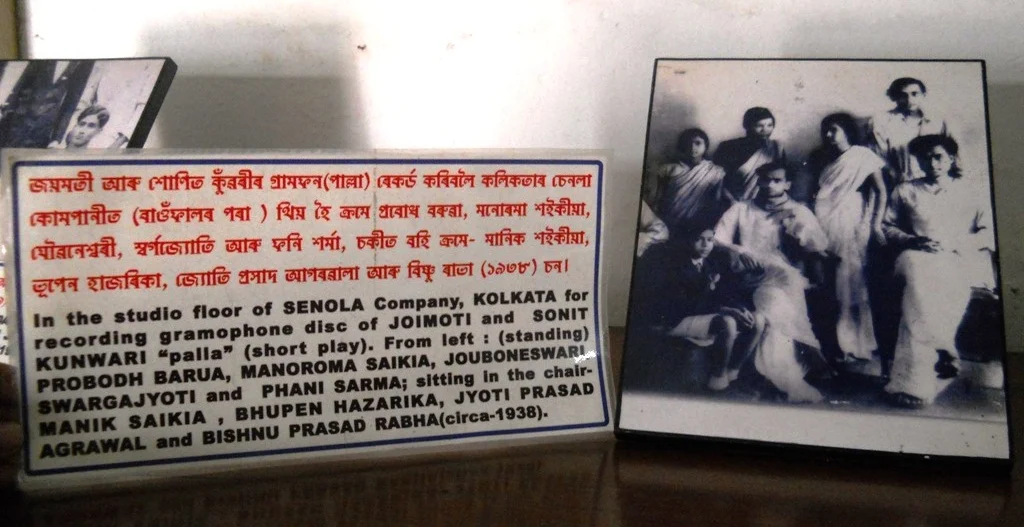 জয়মতী আৰু শোণিত কুঁৱৰীৰ গ্ৰামফন(পাল্লা) ৰেকৰ্ড কৰিবলৈ কলিকতাৰ চেনলা
কোমপানীত (বাওঁফালৰ পৰা ) থিয় হৈ ক্ৰমে প্ৰবোধ বৰুৱা, মনোৰমা শইকীয়া,
যৌৱনেশ্বৰী, স্বৰ্গজ্যোতি আৰু ফনি শৰ্মা, চকীত বহি ক্ৰমে- মানিক শইকীয়া,
ভূপেন হাজৰিকা, জ্যোতি প্ৰসাদ আগৰৱালা আৰু বিষ্ণু ৰাভা (১৯৩৮) চন।
In the studio floor of SENOLA Company, KOLKATA for
recording gramophone disc of JOIMOTI and SONIT
KUNWARI "palla" (short play). From left : (standing)
PROBODH BARUA, MANOROMA SAIKIA, JOUBONESWARI,
SWARGAJYOTI and PHANI SARMA; sitting in the chair-
MANIK SAIKIA , BHUPEN HAZARIKA, JYOTI PRASAD
AGRAWAL and BISHNU PRASAD RABHA(circa-1938).